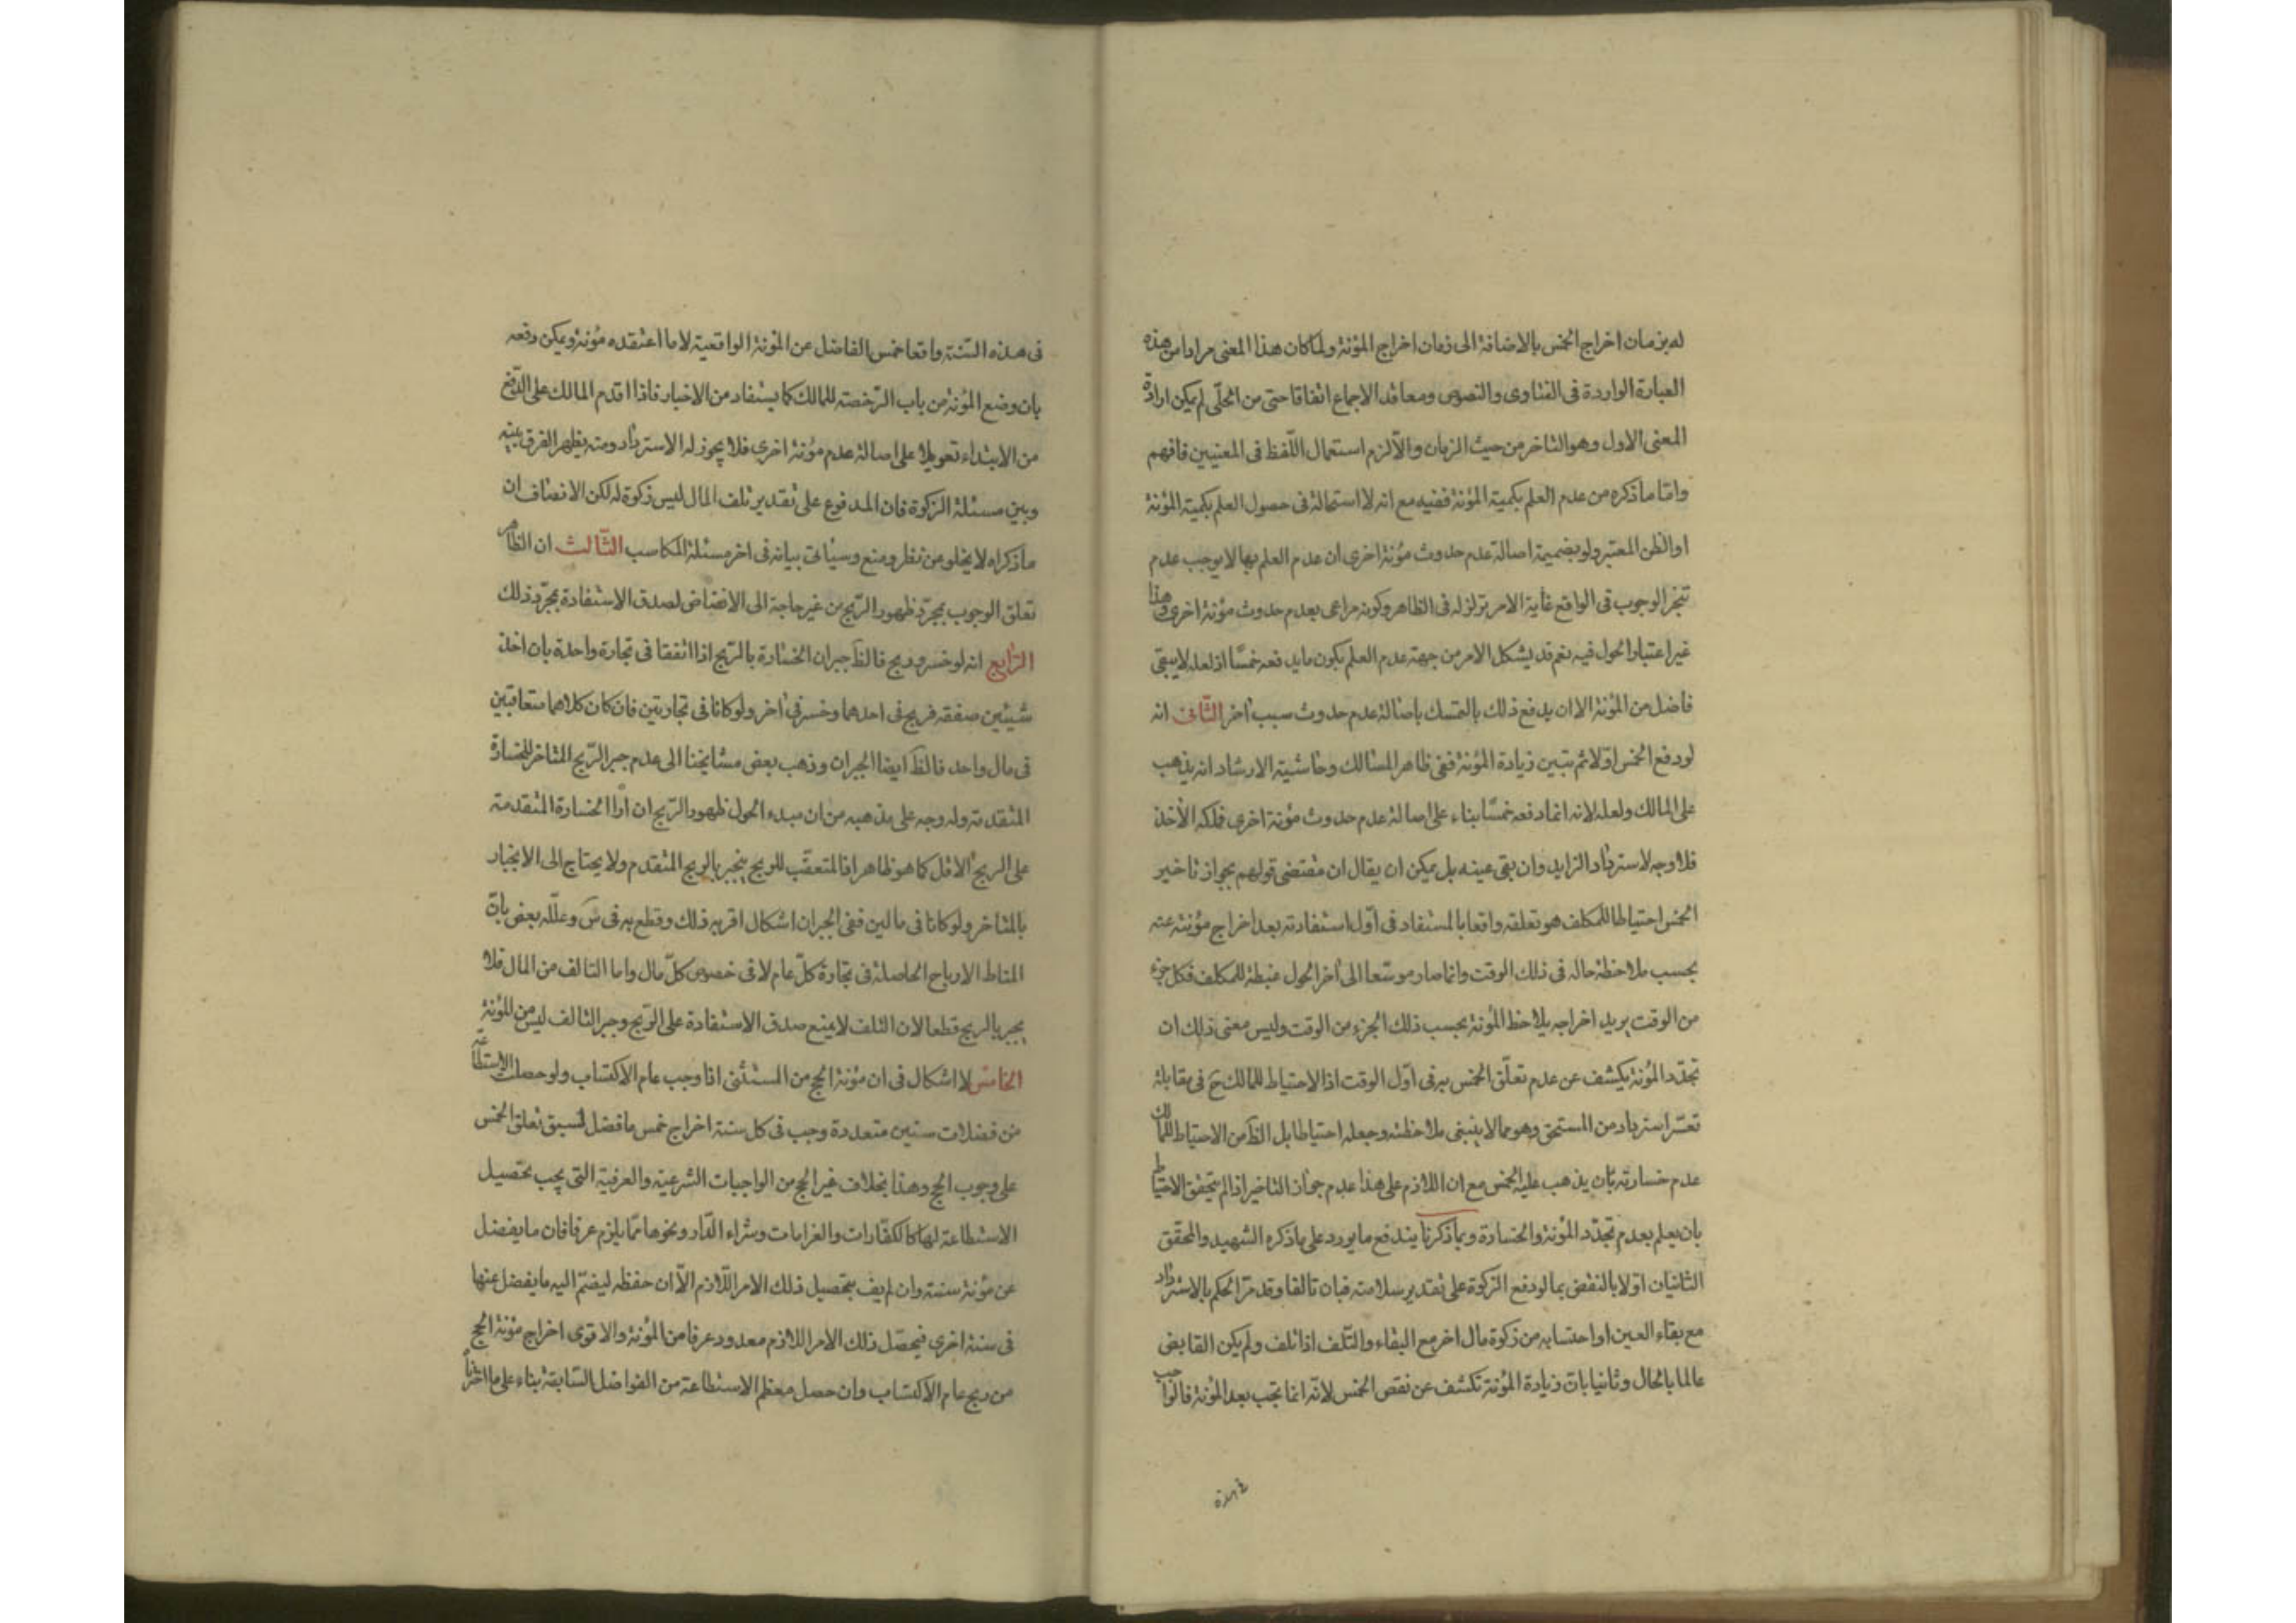 له بزمان اخراج الخمس بالاضافة الى زمان اخراج المؤنة ولما كان هذا المعنى مرادا من هذه
العبارة الواردة فى الفتاوى والنصوص ومعاقد الاجماع اتفاقا حتى من الحلّى لم يكن ارادة
المعنى الاول وهو التاخر من حيث الزمان والّا لزم استعمال اللّفظ فى المعنيين فافهم
وامّا ما ذكره من عدم العلم بكمية المؤنة ففيه مع انه لا استحالة فى حصول العلم بكمية المؤنة
او الظن المعتبر ولو بضميمة اصالة عدم حدوث مؤنة اخرى ان عدم العلم بها لا يوجب عدم
تنجز الوجوب فى الواقع غاية الامر تزلزله فى الظاهر وكونه مراعى بعدم حدوث مؤنة اخرى وهذا
غير اعتبار الحول فيه نعم قد يشكل الامر من جهة عدم العلم بكون ما يدفعه خمسًا اذ لعله لا يبقى
فاضل من المؤنة الا ان يدفع ذلك بالتمسك باصالة عدم حدوث سبب اخر الثّانى انه
لو دفع الخمس اوّلا ثم تبين زيادة المؤنة ففى ظاهر المسالك وحاشية الارشاد انه يذهب
على المالك ولعله لانه انما دفعه خمسًا بناء على اصالة عدم حدوث مؤنة اخرى فملكه الآخذ
فلا وجه لاسترداد الزايد وان بقى عينه بل يمكن ان يقال ان مقتضى قولهم بجواز تاخير
الخمس احتياطا للمكلف هو تعلقه واقعا بالمستفاد فى اوّل استفادته بعد اخراج مؤنته عنه
بحسب ملاحظة حاله فى ذلك الوقت وانما صار موسّعا الى آخر الحول غبطة للمكلف فكل جزء
من الوقت يريد اخراجه يلاحظ المؤنة بحسب ذلك الجزء من الوقت وليس معنى ذلك ان
تجدّد المؤنة يكشف عن عدم تعلّق الخمس به فى اوّل الوقت اذ الاحتياط للمالك ح فى مقابلة
تعسّر استرداد من المستحق وهو مما لا ينبغى ملاحظته وجعله احتياطا بل الظ من الاحتياط للمالك
عدم خسارته بان يذهب عليه الخمس مع ان اللازم على هذا عدم جواز التاخير اذا لم يتحقق الاحتياط
بان يعلم بعدم تجدّد المؤنة والخسارة وبما ذكرنا يندفع ما يورد على ما ذكره الشهيد والمحقق
الثانيان اوّلا بالنقض بما لو دفع الزكوة على تقدير سلامته فبان تالفا وقد مرّ الحكم بالاسترداد
مع بقاء العين او احتسابه من زكوة مال اخر مع البقاء والتّلف اذا تلف ولم يكن القابض
عالما بالحال وثانيا بانّ زيادة المؤنة تكشف عن نقص الخمس لانّه انما تجب بعد المؤنة فالواجب
فى هذه
فى هذه السّنة واقعا خمس الفاضل عن المؤنة الواقعية لا ما اعتقده مؤنة ويمكن دفعه
بان وضع المؤنة من باب الرّخصة للمالك كما يستفاد من الاخبار فاذا اقدم المالك على الدّفع
من الابتداء تعويلا على اصالة عدم مؤنة اخرى فلا يجوز له الاسترداد ومنه يظهر الفرق بينه
وبين مسئلة الزكوة فان المدفوع على تقدير تلف المال ليس زكوة له لكن الانصاف ان
ما ذكراه لا يخلو من نظر ومنع وسياتى بيانه فى اخر مسئلة المكاسب الثّالث ان الظاهر
تعلق الوجوب بمجرّد ظهور الرّبح من غير حاجة الى الانضاض لصدق الاستفادة بمجرّد ذلك
الرّابع انه لو خسر وربح فالظ جبران الخسارة بالرّبح اذا اتفقا فى تجارة واحدة بان اخذ
شيئين صفقة فربح فى احدهما وخسر فى آخر ولو كانا فى تجارتين فان كان كلاهما متعاقبين
فى مال واحد فالظ ايضا الجبران وذهب بعض مشايخنا الى عدم جبر الرّبح المتاخر للخسارة
المتقدمة وله وجه على مذهبه من ان مبدء الحول ظهور الرّبح ان اراد الخسارة المتقدمة
على الربح الاوّل كما هو ظاهر اذ المتعقّب للربح ينجبر بالربح المتقدم ولا يحتاج الى الانجبار
بالمتاخر ولو كانا فى مالين ففى الجبران اشكال اقربه ذلك وقطع به فى س وعلّله بعض بانّ
المناط الارباح الحاصلة فى تجارة كلّ عام لا فى خصوص كلّ مال واما التالف من المال فلا
يجبر بالربح قطعا لان التلف لا يمنع صدق الاستفادة على الربح وجبر التالف ليس من المؤنة
الخامس لا اشكال فى ان مؤنة الحج من المستثنى اذا وجب عام الاكتساب ولو حصلت الاستطاعة
من فضلات سنين متعددة وجب فى كل سنة اخراج خمس ما فضل لسبق تعلق الخمس
على وجوب الحج وهذا بخلاف غير الحج من الواجبات الشرعية والعرفية التى يجب تحصيل
الاستطاعة لها كالكفّارات والغرامات وشراء الدّار ونحوها ممّا يلزم عرفا فان ما يفضل
عن مؤنة سنته وان لم يف بتحصيل ذلك الامر اللّازم الّا ان حفظه ليضمّ اليه ما يفضل عنها
فى سنة اخرى فيحصّل ذلك الامر اللازم معدود عرفا من المؤنة والاقوى اخراج مؤنة الحج
من ربح عام الاكتساب وان حصل معظم الاستطاعة من الفواضل السّابقة بناء على ما اخترنا